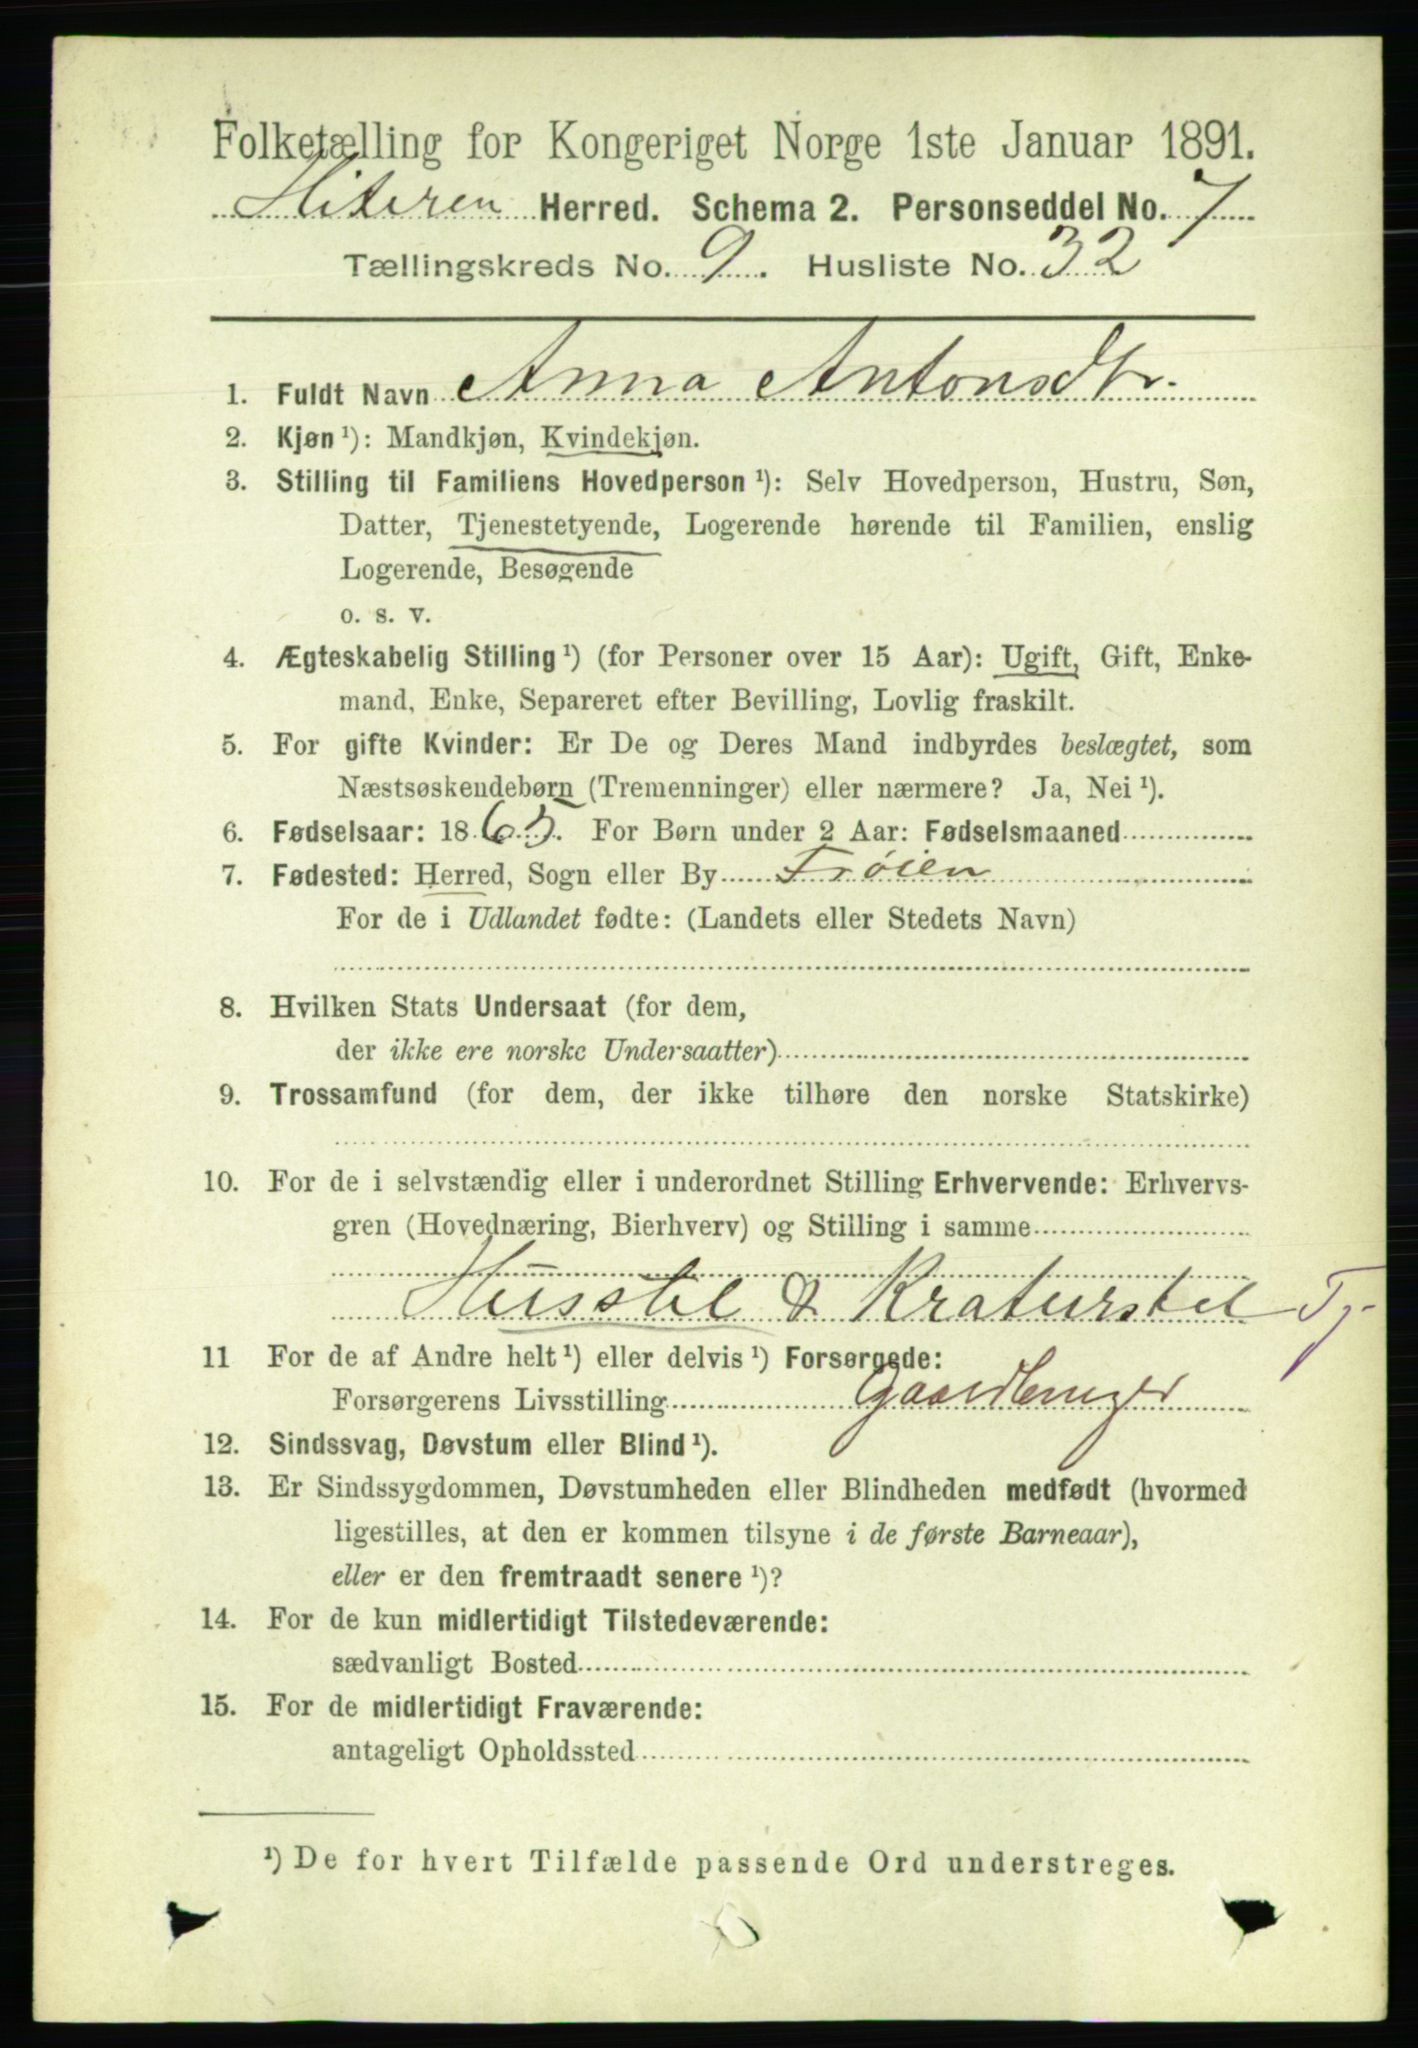 Folketælling for Kongeriget Norge 1ste Januar 1891.
Hiteren Herred. Schema 2. Personseddel No. 7
Tællingskreds No. 9. Husliste No. 32
1. Fuldt Navn Anna Antonsdtr.
2. Kjøn ¹): Mandkjøn, Kvindekjøn.
3. Stilling til Familiens Hovedperson ¹): Selv Hovedperson, Hustru, Søn,
Datter, Tjenestetyende, Logerende hørende til Familien, enslig
Logerende, Besøgende
o. s. v.
4. Ægteskabelig Stilling ¹) (for Personer over 15 Aar): Ugift, Gift, Enke-
mand, Enke, Separeret efter Bevilling, Lovlig fraskilt.
5. For gifte Kvinder: Er De og Deres Mand indbyrdes beslægtet, som
Næstsøskendebørn (Tremenninger) eller nærmere? Ja, Nei ¹).
6. Fødselsaar: 1865. For Børn under 2 Aar: Fødselsmaaned
7. Fødested: Herred, Sogn eller By Frøien
For de i Udlandet fødte: (Landets eller Stedets Navn)
8. Hvilken Stats Undersaat (for dem,
der ikke ere norske Undersaatter)
9. Trossamfund (for dem, der ikke tilhøre den norske Statskirke)
10. For de i selvstændig eller i underordnet Stilling Erhvervende: Erhvervs-
gren (Hovednæring, Bierhverv) og Stilling i samme
Husstel & Kraturstel Tj.
11 For de af Andre helt ¹) eller delvis ¹) Forsørgede:
Forsørgerens Livsstilling Gaardbruger
12. Sindssvag, Døvstum eller Blind ¹).
13. Er Sindssygdommen, Døvstumheden eller Blindheden medfødt (hvormed
ligestilles, at den er kommen tilsyne i de første Barneaar),
eller er den fremtraadt senere ¹)?
14. For de kun midlertidigt Tilstedeværende:
sædvanligt Bosted
15. For de midlertidigt Fraværende:
antageligt Opholdssted
¹) De for hvert Tilfælde passende Ord understreges.